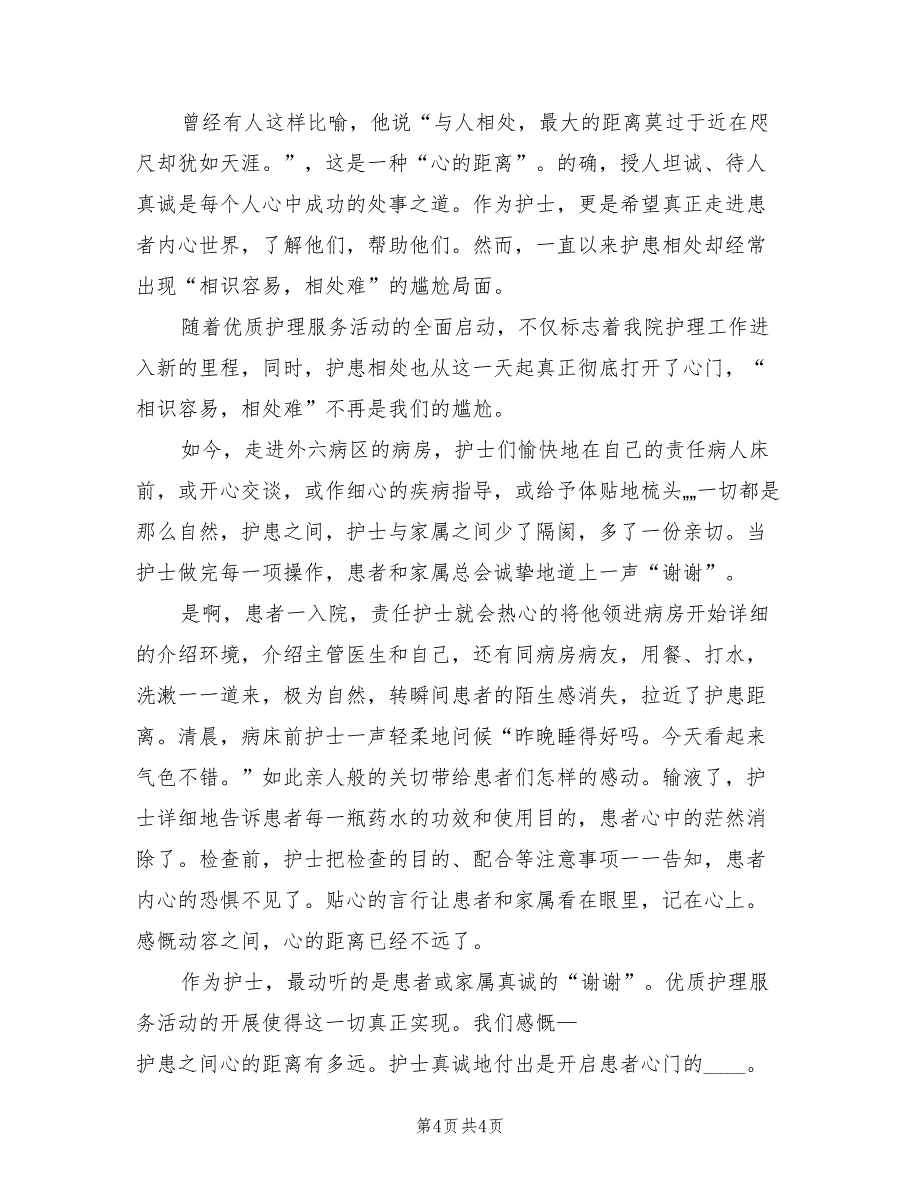 曾经有人这样比喻，他说“与人相处，最大的距离莫过于近在咫
尺却犹如天涯。”，这是一种“心的距离”。的确，授人坦诚、待人
真诚是每个人心中成功的处事之道。作为护士，更是希望真正走进患
者内心世界，了解他们，帮助他们。然而，一直以来护患相处却经常
出现“相识容易，相处难”的尴尬局面。
随着优质护理服务活动的全面启动，不仅标志着我院护理工作进
入新的里程，同时，护患相处也从这一天起真正彻底打开了心门，“
相识容易，相处难”不再是我们的尴尬。
如今，走进外六病区的病房，护士们愉快地在自己的责任病人床
前，或开心交谈，或作细心的疾病指导，或给予体贴地梳头„„一切都是
那么自然，护患之间，护士与家属之间少了隔阂，多了一份亲切。当
护士做完每一项操作，患者和家属总会诚挚地道上一声“谢谢”。
是啊，患者一入院，责任护士就会热心的将他领进病房开始详细
的介绍环境，介绍主管医生和自己，还有同病房病友，用餐、打水，
洗漱一一道来，极为自然，转瞬间患者的陌生感消失，拉近了护患距
离。清晨，病床前护士一声轻柔地问候“昨晚睡得好吗。今天看起来
气色不错。”如此亲人般的关切带给患者们怎样的感动。输液了，护
士详细地告诉患者每一瓶药水的功效和使用目的，患者心中的茫然消
除了。检查前，护士把检查的目的、配合等注意事项一一告知，患者
内心的恐惧不见了。贴心的言行让患者和家属看在眼里，记在心上。
感慨动容之间，心的距离已经不远了。
作为护士，最动听的是患者或家属真诚的“谢谢”。优质护理服
务活动的开展使得这一切真正实现。我们感慨—
护患之间心的距离有多远。护士真诚地付出是开启患者心门的____。
第4页 共4页